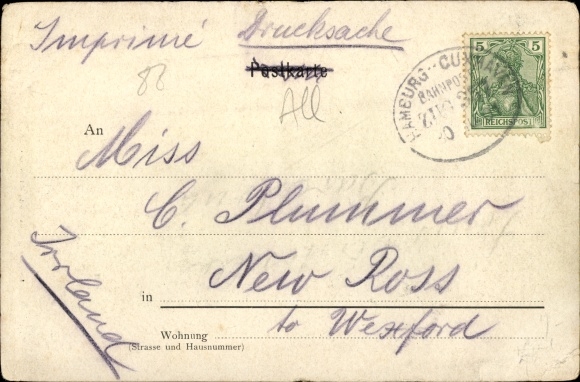 Imprimé Drucksache
Postkarte
88
All
5 5
REICHSPOST
HAMBURG - CUXHAVEN
BAHNPOST
An
Miss
C. Plummer
New Ross
in
to Wexford
Irrland
Wohnung
(Strasse und Hausnummer)